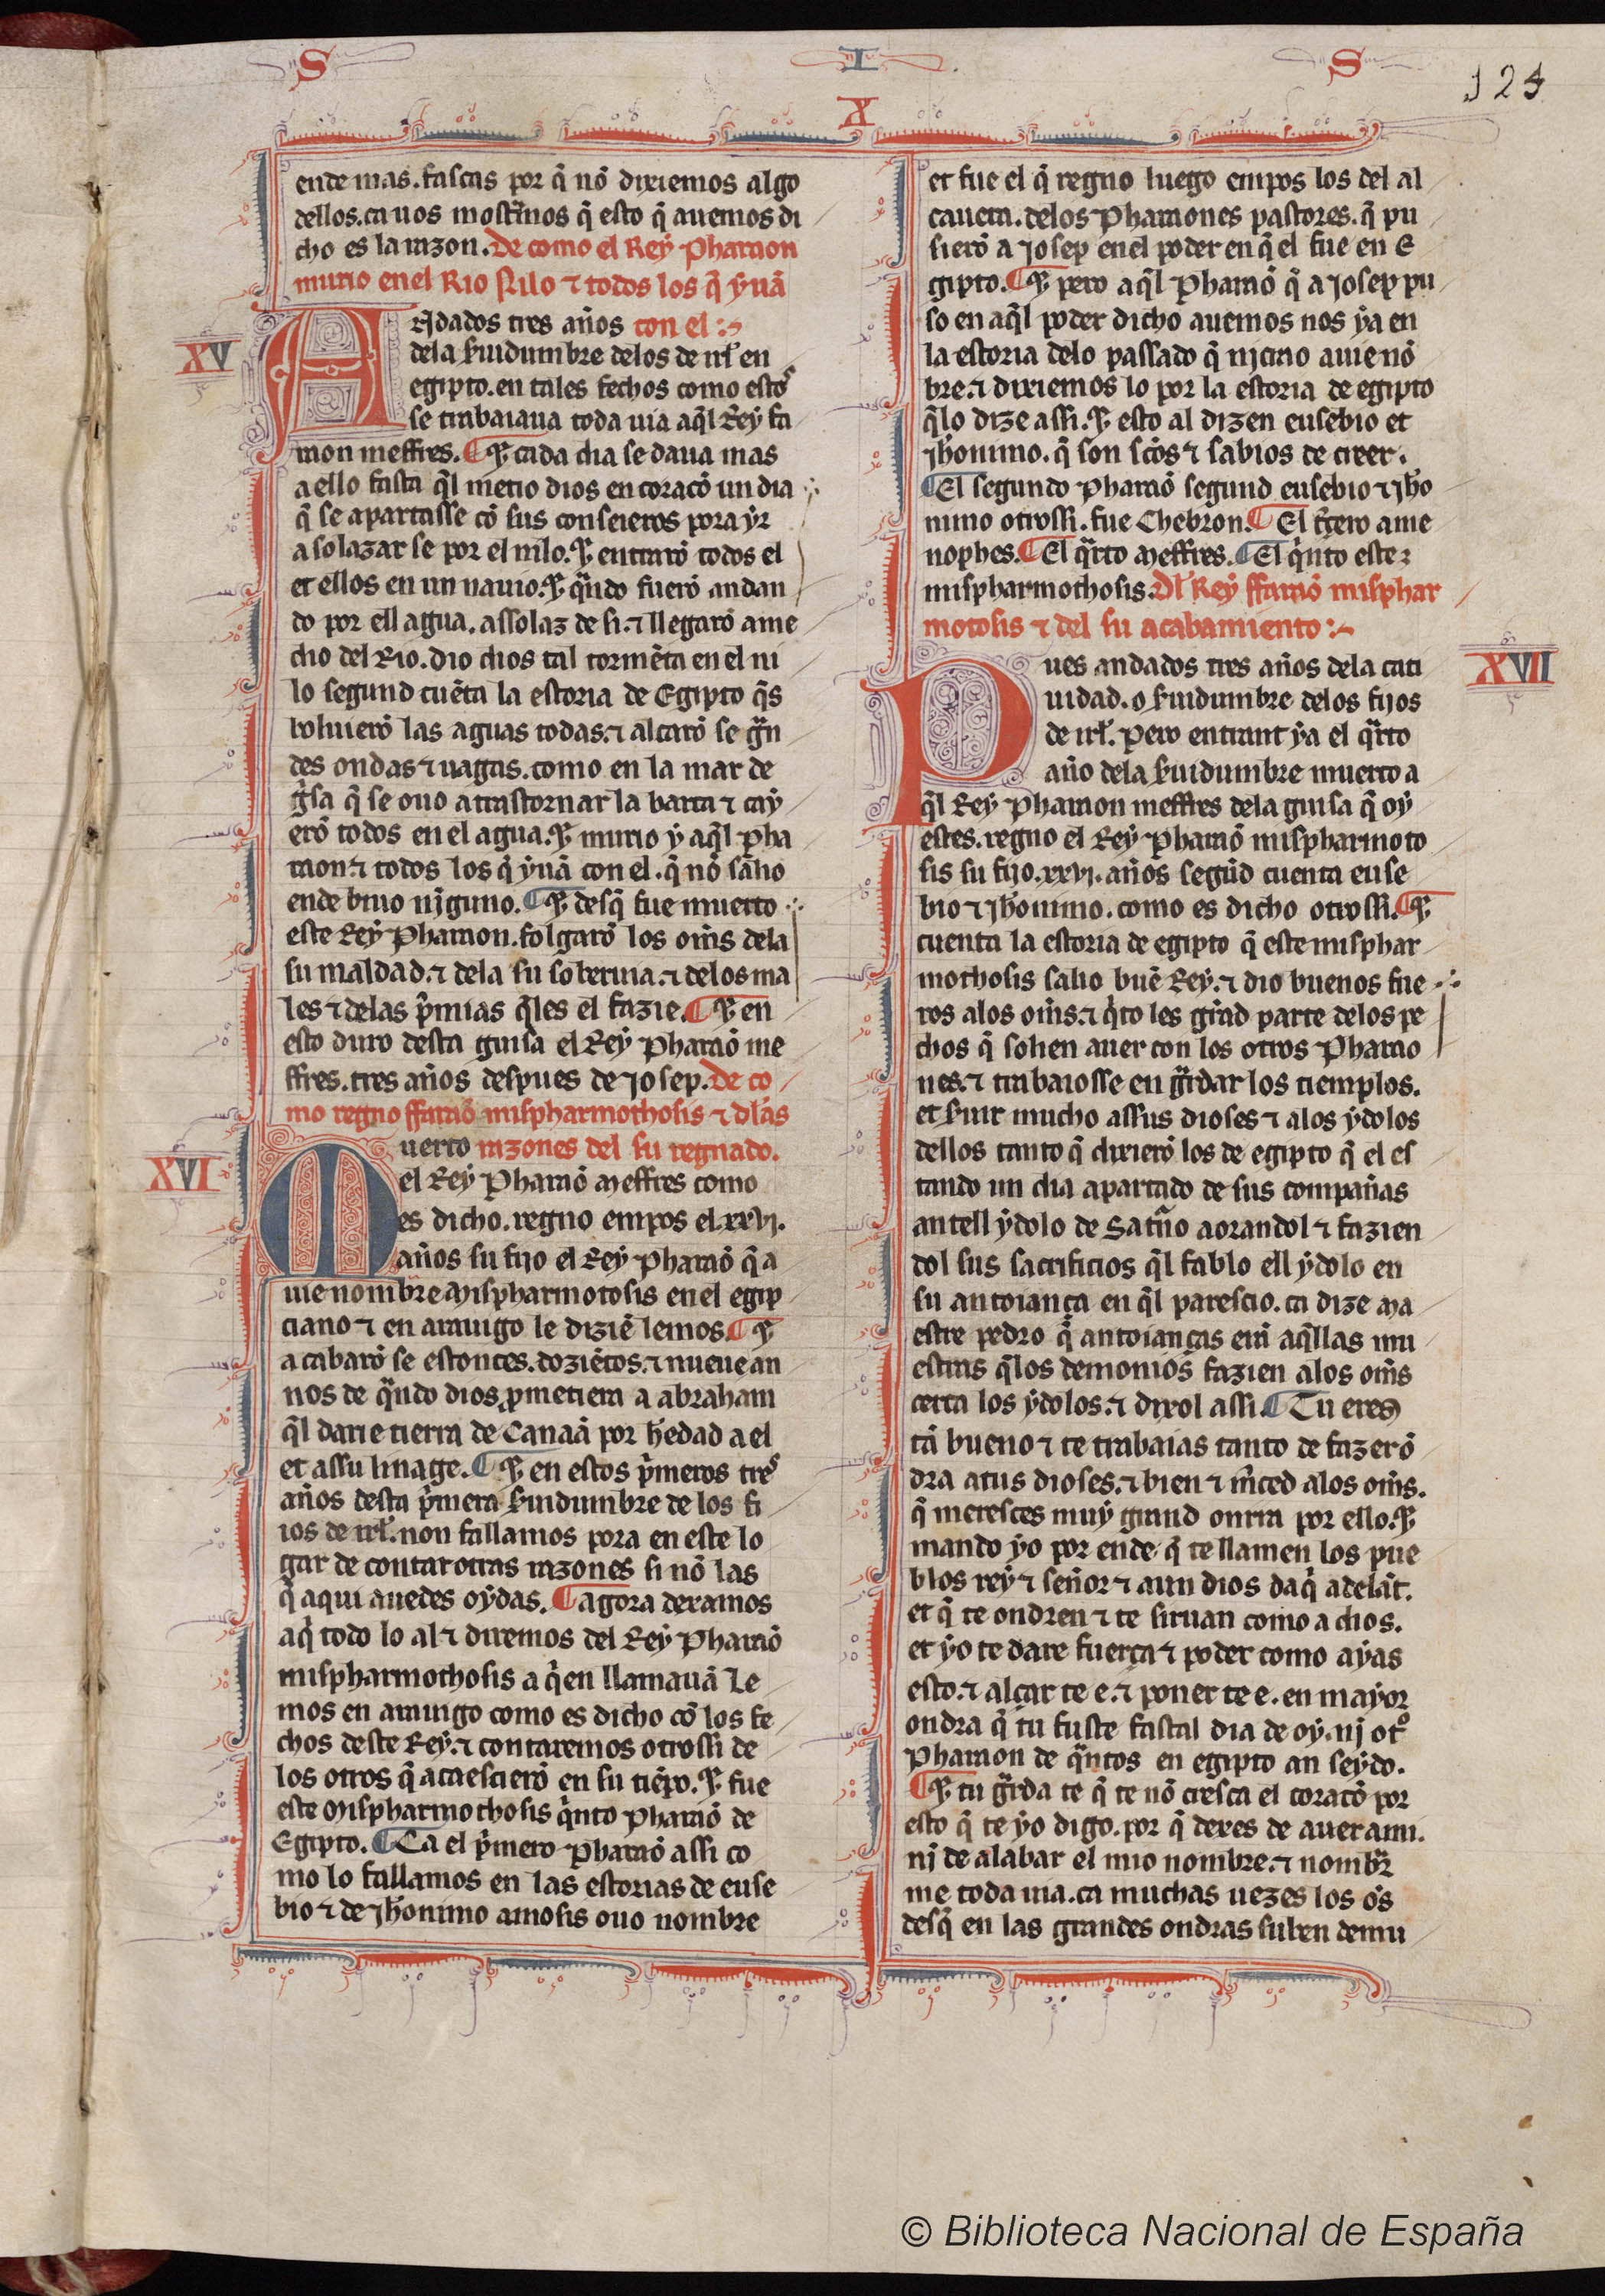 S I S
X
124
ende mas. fascas por q̃ nõ dixiemos algo
dellos. ca uos mostrãnos q̃ esto q̃ auemos di
cho es la razon. De como el Rey Pharaon
murio en el Rio Nilo ⁊ todos los q̃ yuã
XV
ANdados tres años con el :~
dela s̃uidumbre delos de irl̃ en
egipto. en tales fechos como estos
se trabaiaua toda uia aq̃l Rey fa
raon meffres. ¶ ⁊ cada dia se daua mas
a ello fasta q̃l metio dios en coraçõ un dia
q̃ se apartasse cõ sus conseieros pora yr
a solazar se por el nilo. ⁊ entrarõ todos el
et ellos en un nauio. ⁊ q̃ndo fuerõ andan
do por ell agua. assolaz de si. ⁊ llegarõ a me
dio del Rio. dio dios tal tormẽta en el ni
lo segund cuẽta la estoria de Egipto q̃s
boluierõ las aguas todas. ⁊ alçarõ se grãn
des ondas ⁊ uagas. como en la mar de
g̃sa q̃ se ouo a trastornar la barca ⁊ cay
erõ todos en el agua. ⁊ murio y aq̃l pha
raon ⁊ todos los q̃ yuã con el. q̃ nõ salio
ende biuo nj̃guno. ¶ ⁊ desq̃ fue muerto
este Rey Pharaon. folgarõ los om̃s dela
su maldad. ⁊ dela su soberuia. ⁊ delos ma
les ⁊ delas p̃mias q̃les el fazie. ¶ ⁊ en
esto duro desta guisa el Rey Pharaõ me
ffres. tres años despues de Josep. De co
mo regno ffaraõ mispharmothosis ⁊ dl̃as
XVI
Muerto razones del su regnado.
el Rey Pharaõ Meffres como
es dicho. regno empos el. xxvj.
años su fijo el Rey Pharaõ q̃ a
uie nombre Mispharmotosis en el egip
ciano ⁊ en arauigo le diziẽ lemos. ¶ ⁊
acabarõ se estonces. doziẽtos. ⁊ nueue an
nos de q̃ndo dios ꝓmetiera a abraham
q̃l darie tierra de Canaã por h̃edad a el
et assu linage. ¶ ⁊ en estos p̃meros tres
años desta p̃mera s̃uidumbre de los fi
ios de irl̃. non fallamos pora en este lo
gar de contar otras razones si nõ las
q̃ aqui auedes oydas. ¶ agora dexamos
aq̃ todo lo al ⁊ diremos del Rey Pharaõ
mispharmothosis a q̃en llamauã Le
mos en arauigo como es dicho cõ los fe
chos deste Rey. ⁊ contaremos otrossi de
los otros q̃ acaescierõ en su tiẽpo. ⁊ fue
este Mispharmothosis q̃nto pharaõ de
Egipto. ¶ Ca el p̃mero Pharaõ assi co
mo lo fallamos en las estorias de euse
bio ⁊ de jh̃onimo amosis ouo nombre
et fue el q̃ regno luego empos los del al
cauera. delos Pharaones pastores. q̃ pu
sierõ a Josep en el poder en q̃ el fue en E
gipto. ¶ ⁊ pero aq̃l Pharaõ q̃ a Josep pu
so en aq̃l poder dicho auemos nos ya en
la estoria delo passado q̃ njcrao auie nõ
bre. ⁊ dixiemos lo por la estoria de egipto
q̃lo dize assi. ⁊ esto al dizen eusebio et
jh̃onimo. q̃ son scõs ⁊ sabios de creer.
¶ El segundo Pharaõ segund eusebio ⁊ jh̃o
nimo otrossi. fue Chebron. ¶ El t̃cero ame
nophes. ¶ El q̃rto Meffres. ¶ El q̃nto este
mispharmothosis. Dl̃ Rey ffaraõ misphar
motosis ⁊ del su acabamiento :~
XVII
Pues andados tres años dela cati
uidad. o s̃uidumbre delos fijos
de irl̃. Pero entrant ya el q̃rto
año dela s̃uidumbre muerto a
q̃l Rey Pharaon meffres dela guisa q̃ oy
estes. regno el Rey Pharaõ mispharmoto
sis su fijo. xxvj. años segũd cuenta euse
bio ⁊ jh̃onimo. como es dicho otrossi. ¶ ⁊
cuenta la estoria de egipto q̃ este misphar
mothosis salio buẽ Rey. ⁊ dio buenos fue
ros alos om̃s. ⁊ q̃to les grãd parte delos pe
chos q̃ solien auer con los otros Pharao
nes. ⁊ trabaiosse en g̃rdar los tiemplos.
et s̃uir mucho assus dioses ⁊ alos ydolos
dellos tanto q̃ dixierõ los de egipto q̃ el es
tando un dia apartado de sus compañas
antell ydolo de Satr̃no aorandol ⁊ fazien
dol sus sacrificios q̃l fablo ell ydolo en
su antoiança en q̃l parescio. ca dize Ma
estre pedro q̃ antoianças erã aq̃llas mu
estras q̃los demonios fazien alos om̃s
cerca los ydolos. ⁊ dixol assi. ¶ Tu eres
tã bueno ⁊ te trabaias tanto de fazer õ
dra atus dioses. ⁊ bien ⁊ m̃ced alos om̃s.
q̃ meresces muy grand onrra por ello. ⁊
mando yo por ende. q̃ te llamen los pue
blos rey ⁊ señor ⁊ aun dios daq̃ adelãt.
et q̃ te ondren ⁊ te siruan como a dios.
et yo te dare fuerça ⁊ poder como ayas
esto. ⁊ alçar te e. ⁊ poner te e. en mayor
ondra q̃ tu fuste fastal dia de oy. nj ot̃o
Pharaon de q̃ntos en egipto an seydo.
¶ ⁊ tu g̃rda te q̃ te nõ cresca el coraçõ por
esto q̃ te yo digo. por q̃ dexes de auer ami.
nj de alabar el mio nombre. ⁊ nombr̃
me toda uia. ca muchas uezes los om̃s
desq̃ en las grandes ondras suben demu
© Biblioteca Nacional de España